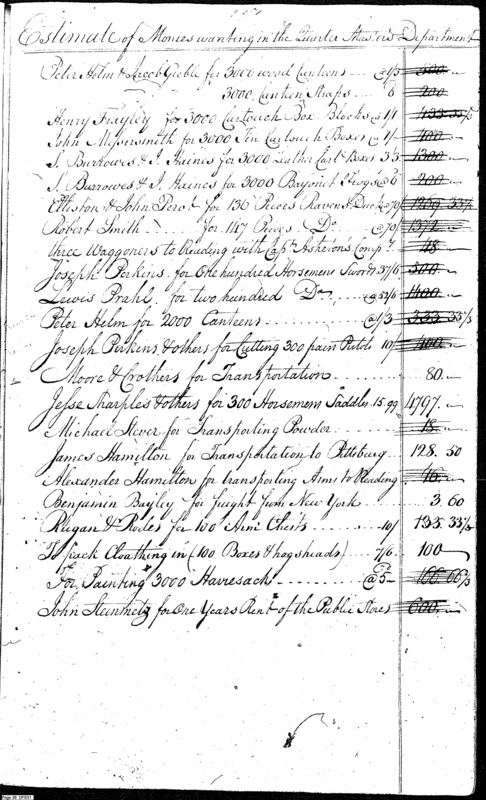 Estimate of Monies wanting in the Quarter Master's Department
Peter Helm & Jacob Gieble for 3000 wood Canteens ... @1/3 500
3000 Canteen Straps .. 6 200
Henry Frayley for 3000 Cartouch Box Blocks @1/1 433 33/3
John Messersmith for 3000 Tin Cartouch Boxes @1/ 400
J. Burrowes & J. Haines for 3000 Leather Cart. Boxes 3/3 1300
J. Burrowes & J. Haines for 3000 Bayonet Frogs @6 200
Elliston & John Perot for 136 Pieces Ravens Duck @70/ 1269 33/3
Robert Smith for 147 Pieces Do @70/ 1372
three Waggoners to Reading with Capt. Ashetons Comp.y 48
Joseph Perkins for One hundred Horsemens Swords 37/6 500
Lewis Prahl for two hundred Do @52/6 1400
Peter Helm for 2000 Canteens @1/3 333 33/3
Joseph Perkins & others for Cutting 300 pair Pistols 10/ 400
Moore & Crothers for Transportation 80
Jesse Sharples & others for 300 Horsemens Saddles 15.99 4797
Michael Kever for Transporting Powder 18
James Hamilton for Transportation to Pittsburg 128. 50
Alexander Hamilton for transporting Arms to Reading 16
Benjamin Bayley for freight from New York 3 60
& Rodes for 100 Arm Chests 10/ 133 33/3
To pack Cloathing in (100 Boxes & hogsheads) 7/6 100
For Painting 3000 Havresacks @5 166 66/3
John Steinmetz for One Years Rent of the Public Stores 600